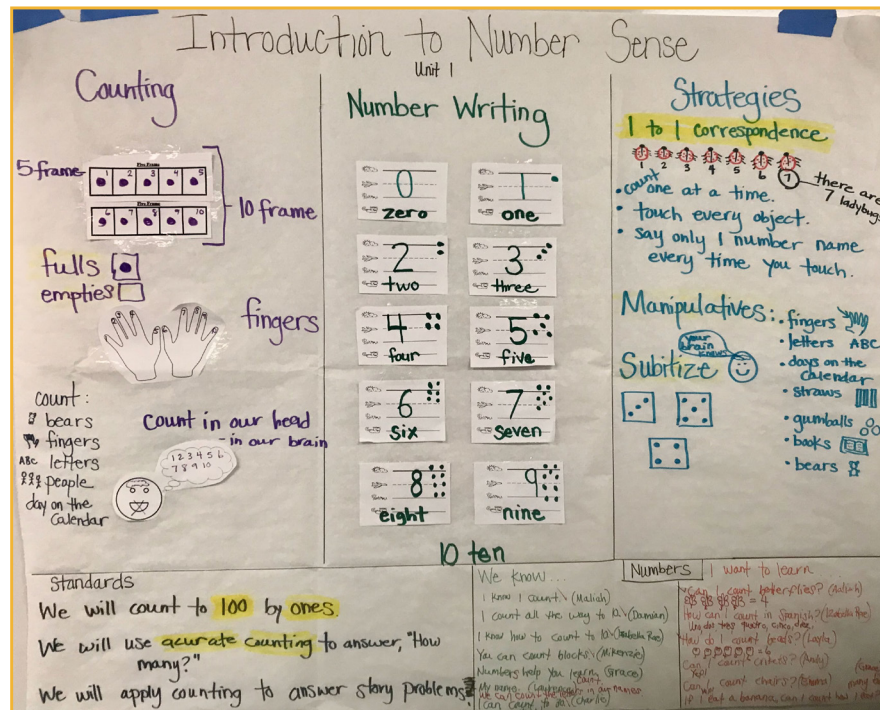 Introduction to Number Sense
Unit 1
Counting
5 frame
Five Frame
1 2 3 4 5
Five Frame
6 7 8 9 10
10 frame
fulls
empties
fingers
count:
bears
fingers
ABC letters
people
day on the
calendar
count in our head
- in our brain
1 2 3 4 5 6
7 8 9 10
Number Writing
0
zero
1
one
2
two
3
three
4
four
5
five
6
six
7
seven
8
eight
9
nine
10 ten
Strategies
1 to 1 correspondence
1 2 3 4 5 6 7
there are
7 ladybugs
• count one at a time.
• touch every object.
• say only 1 number name
every time you touch.
Manipulatives:
• fingers
• letters ABC
• days on the
calendar
• straws
• gumballs
• books
• bears
Subitize
your
brain
knows
Standards
We will count to 100 by ones.
We will use acurate counting to answer, "How
many?"
We will apply counting to answer story problems.
We know...
I know I count. (Maliah)
I count all the way to 10. (Damian)
I know how to count to 10. (Isabella Rae)
You can count blocks. (Mikenzie)
Numbers help you learn. (Grace)
My name.
We can count the letters in our names
I can count to 20. (Charlie)
Numbers
I want to learn
Can I count butterflies? (Maliah)
= 4
How can I count in Spanish? (Isabella Rae)
Uno, dos, tres, quatro, cinco, diez
How do I count beads? (Layla)
= 6
Can I count crosses? (Andy)
Yep!
Can I count chairs? (Emma)
If I eat a banana, can I count how